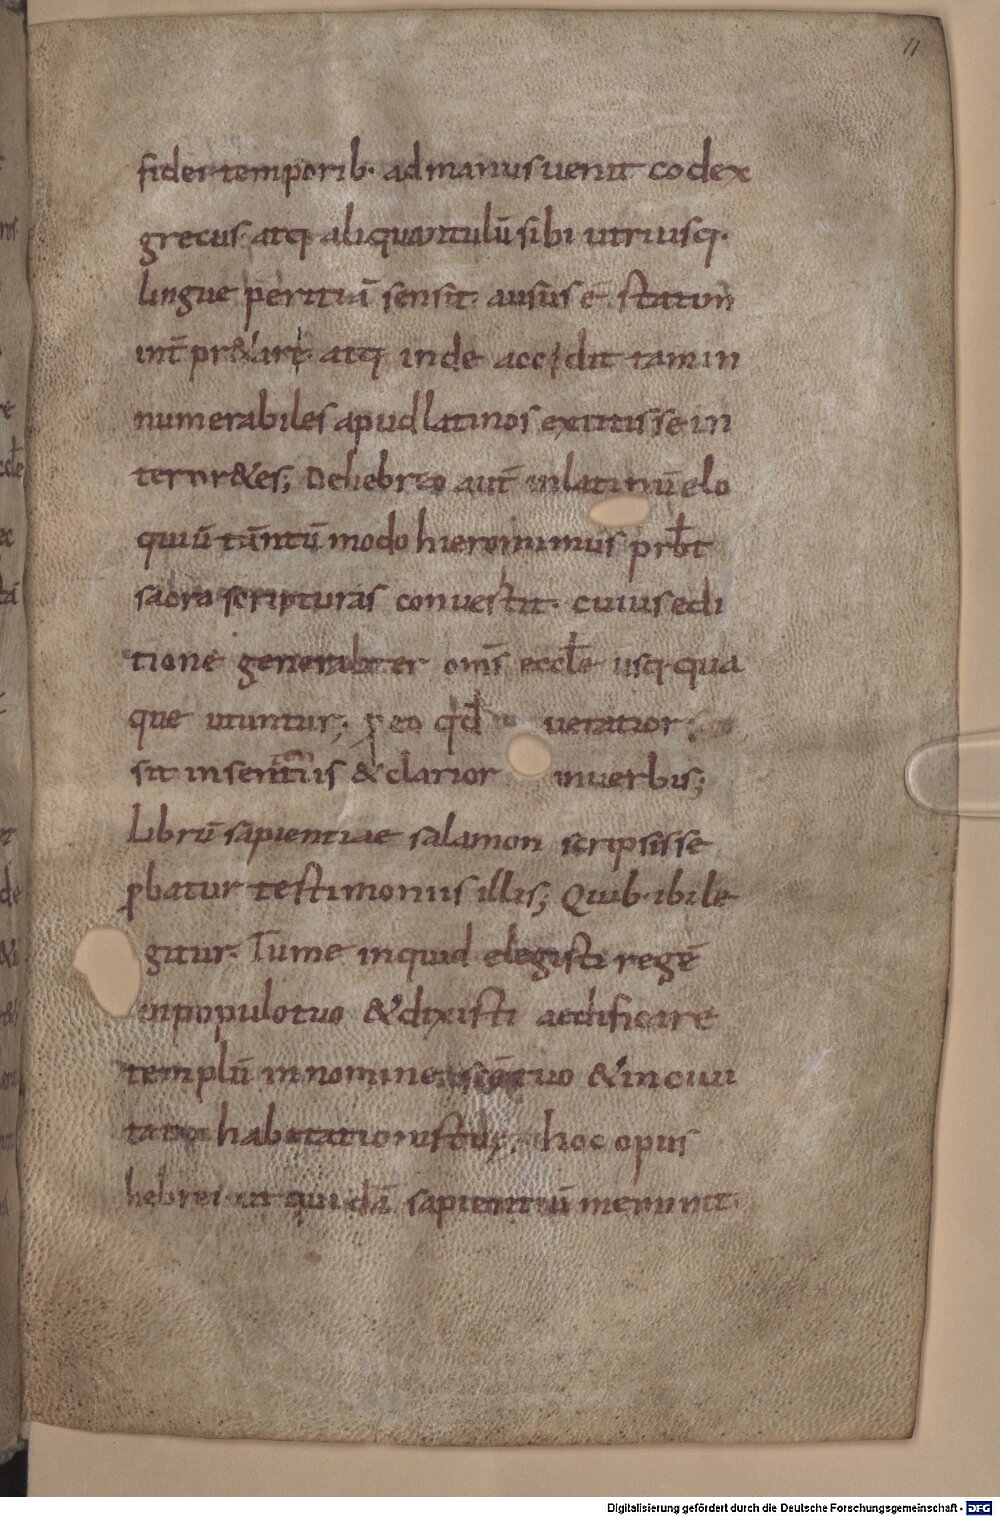 11
fidei temporib· ad manus uenit codex
grecus atq; aliquantulū sibi utriusq·
lingue peritiā sensit· ausus ē statim
int̄pr&are· atq; inde accidit tam in
numerabiles apud latinos extitisse in
terpr&es; De hebreo aut̄ in latinū elo
quiū tantū modo hieronimus prƀt
sacra scripturas conuertit· cuius edi
tione generaliter om̄s eccƚe usq·qua
que utuntur; ꝓ eo qđ ueratior
sit in sententiis & clarior in uerbis;
Librū sapientiae salamon scripsisse
ꝓbatur testimoniis illis; Quib· ibi le
gitur· Tu me inquid elegisti regē
in populo tuo & dixisti aedificare
templū in nomine sc̄o tuo & in ciui
tate habitationis tuę; hoc opus
hebrei ut quidā sapientiū meminit·
Digitalisierung gefördert durch die Deutsche Forschungsgemeinschaft - DFG